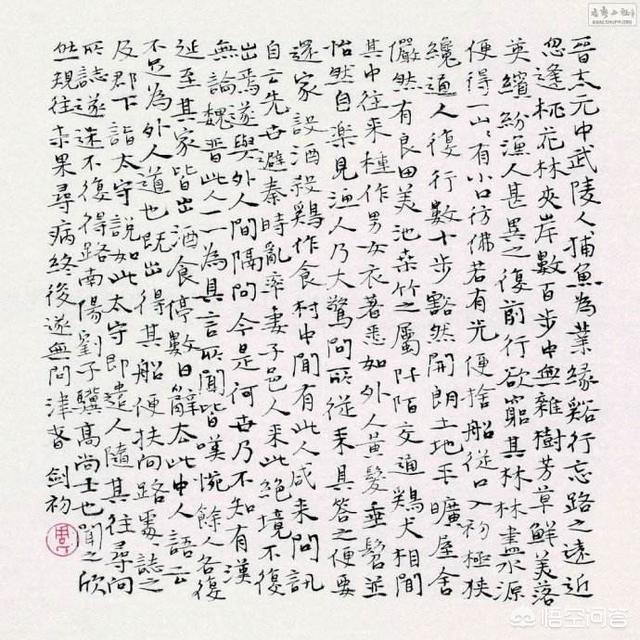 晋太元中武陵人捕魚為業緣谿行忘路之遠近
忽逢桃花林夾岸數百步中無雜樹芳草鮮美落
英繽紛漁人甚異之復前行欲窮其林林盡水源
便得一山〻有小口彷佛若有光便捨船從口入初極狭
纔通人復行數十步豁然開朗土地平曠屋舍
儼然有良田美池桑竹之屬阡陌交通鷄犬相聞
其中往来種作男女衣著悉如外人黄髮垂髫並
怡然自樂見漁人乃大驚問所從来具答之便要
還家設酒殺鷄作食村中聞有此人咸来問訊
自云先世避秦時亂率妻子邑人来此絶境不復
出焉遂與外人間隔問今是何世乃不知有漢
無論魏晋此人一一為具言所聞皆嘆惋餘人各復
延至其家皆出酒食停數日辭去此中人語云
不足為外人道也既出得其船便扶向路處〻誌之
及郡下詣太守説如此太守即遣人隨其往尋向
所誌遂迷不復得路南陽劉子驥髙尚士也聞之欣
然規往未果尋病終後遂無問津者 剑初
悟空问答